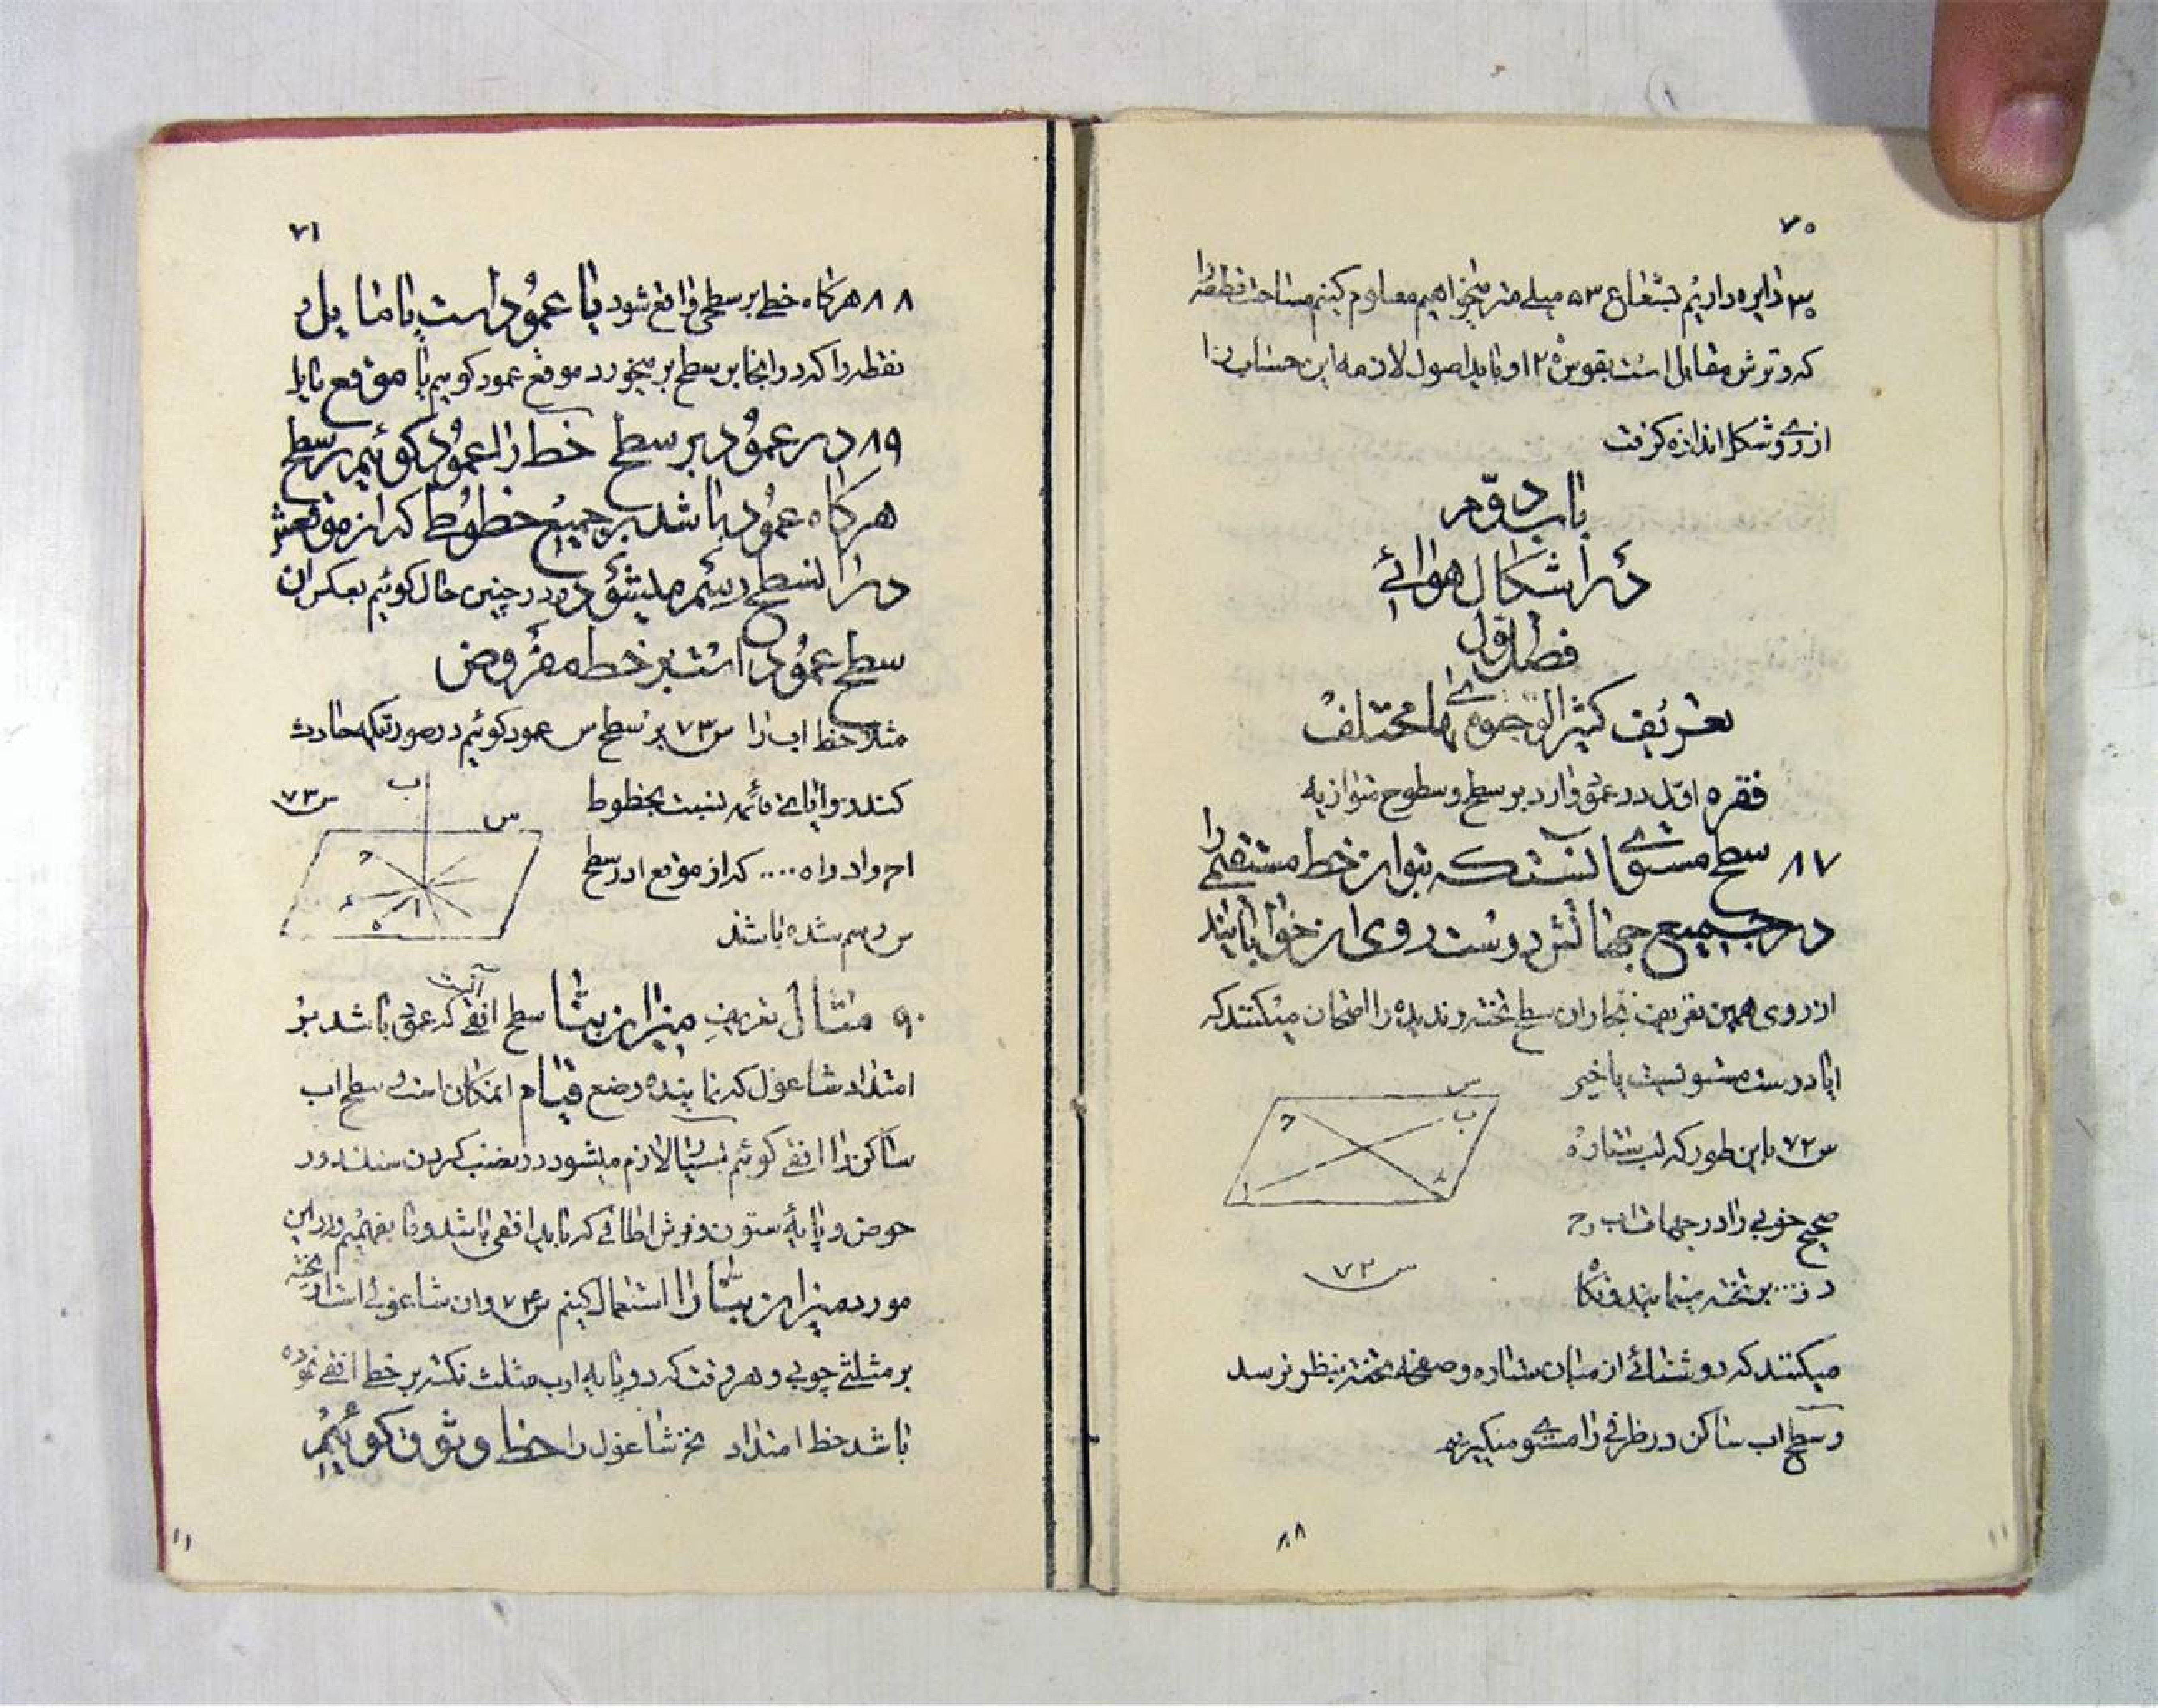 ۷۰
۳۰ دایره داریم بشعاع ۵۳ میلی متر میخواهیم معلوم کنیم مساحت قطعه را
که وترش مقابل است بقوس ۱۲۰ او باید اصول لازمه این حساب را
از روی شکل اندازه گرفت
باب دوّم
در اشکال هوائی
فصل اوّل
تعریف کثیر الوجوه های مختلف
فقره اوّل در عمق وارد بر سطح و سطوح متوازیه
۸۷ سطح مستوی آنست که بتوان خط مستقیمی را
در جمیع جهاتش درست روی آن خوابانید
از روی همین تعریف نجاران سطح تخته رندیده را امتحان میکنند که
ایا درست مستویست یا خیر
س ۷۲ باین طور که لب ستاره
صحیح خوبی را در جهات اب و ح
د ز ... بر تخته مینمایند و نگاه
میکنند که روشنائی از میان ستاره و صفحه تخته بنظر نرسد
و سطح اب ساکن در ظرفی را مستوی میگیریم
س
ب
ح
د
ا
س ۷۲
۸۸
۷۱
۸۸ هرگاه خطی بر سطحی واقع شود یا عمود است یا مایل و
نقطه را که در انجا بر سطح بر میخورد موقع عمود گوییم یا موقع مایل
۸۹ در عمود بر سطح خط را عمود گوئیم بر سطح
هرگاه عمود باشد بر جمیع خطوط که از موقعش
در ان سطح رسم میشود و در چنین حال گوئیم بعکس ان
سطح عمود است بر خط مفروض
مثلا خط اب را س ۷۳ بر سطح س عمود گوئیم در صورتیکه حادث
کند زوایای قائمه نسبت بخطوط
اح و اد و اه .... که از موقع ا در سطح
س رسم شده باشند
س ۷۳
ب
س
ح
د
ا
ه
۹۰ مثال تعریف میزان بنا سطح افقی آنست که عمود باشد بر
امتداد شاغول که نماینده وضع قیام امکان است و سطح اب
ساکن را افقی گوئیم بسیار لازم میشود در نصب کردن سنگ در
حوض و پایهٔ ستون و فرش اطاقی که باید افقی باشد و تا بفهمیم در این
مورد میزان بنا را استعمال کنیم س ۷۴ و ان شاغولی است اویخته
بر مثلثی چوبی و هر وقت که دو پایه اوب مثلث تکیه بر خط افقی نموده
باشد خط امتداد نخ شاغول را خط وثوق گوئیم
۱۱